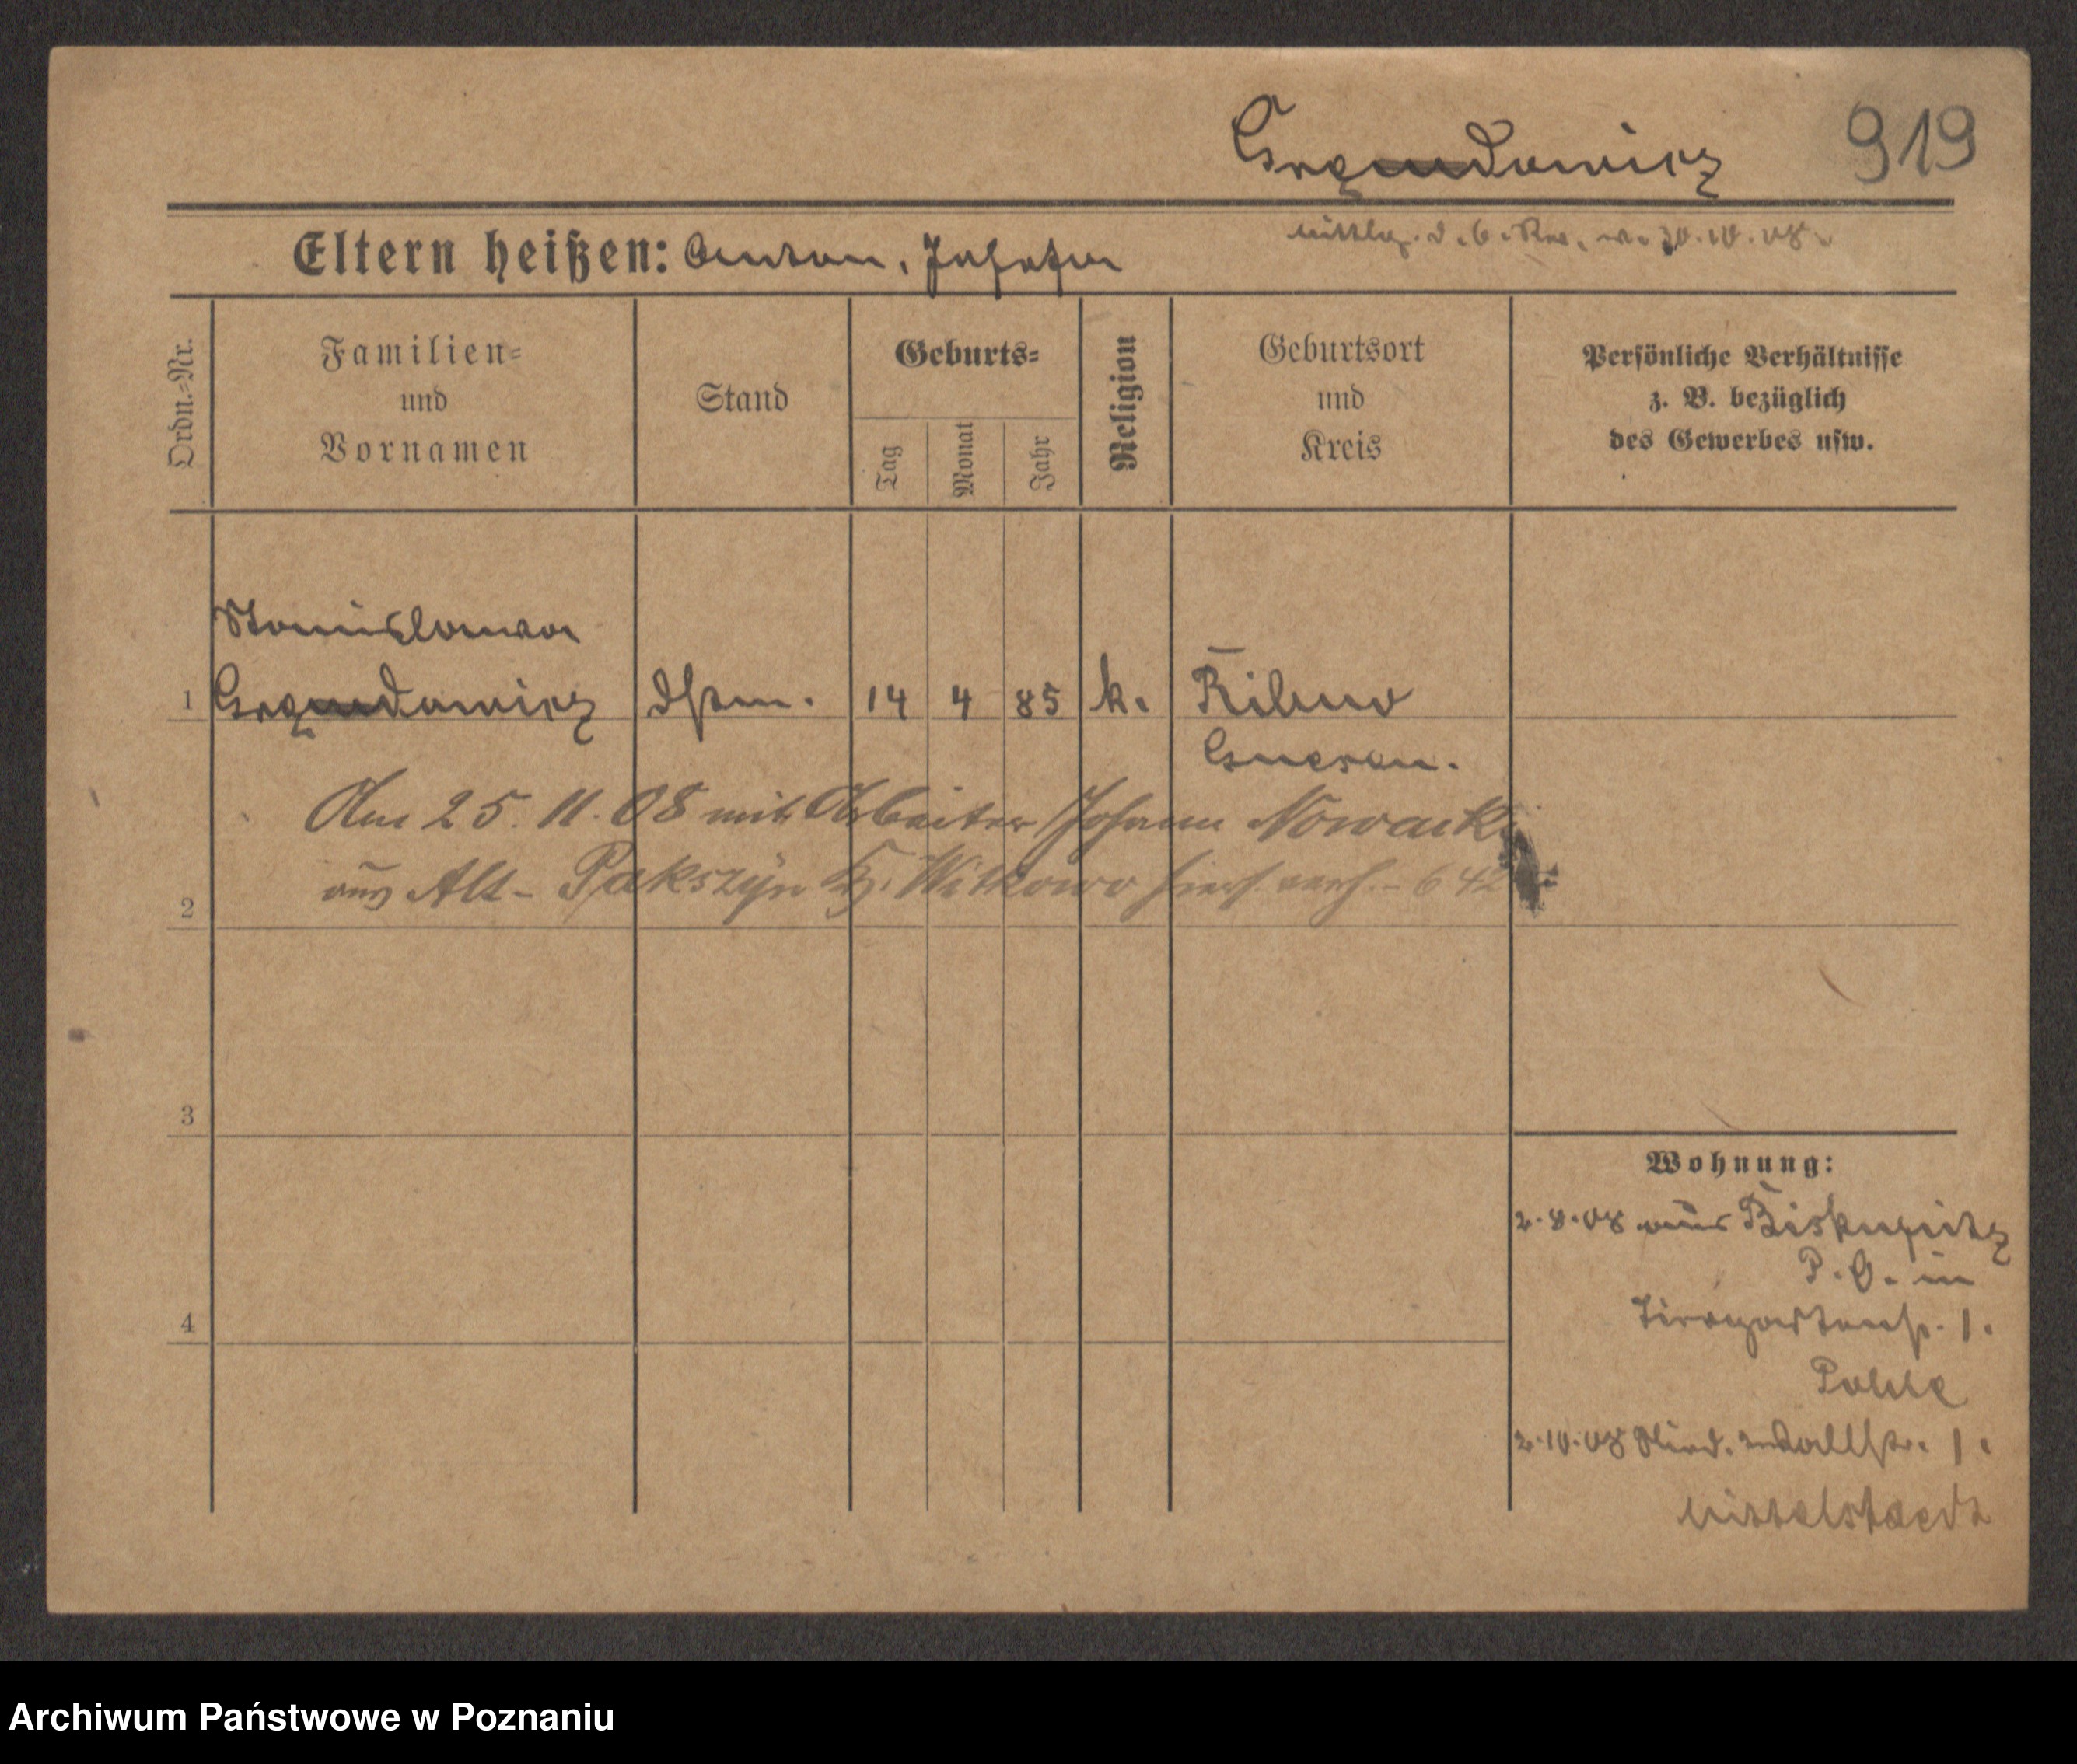 919
Eltern heißen: Anton, Josefa
Ordn.-Nr.
Familien-
und
Vornamen
Stand
Geburts-
Tag
Monat
Jahr
Religion
Geburtsort
und
Kreis
Persönliche Verhältnisse
z. B. bezüglich
des Gewerbes usw.
Stanislawa
1 14 4 85 k.
Gnesen.
Am 25. 11. 08 mit Arbeiter Johann Nowacki
aus Alt-Pakszyn Kr. Witkowo hiers. verh. - 642
2
3
4
Wohnung:
2.8.08 aus Biskupitz
P. O. in
Tiergartenstr. 1.
2.10.08 wallstr. 1.
Mittelstaedt
Archiwum Państwowe w Poznaniu